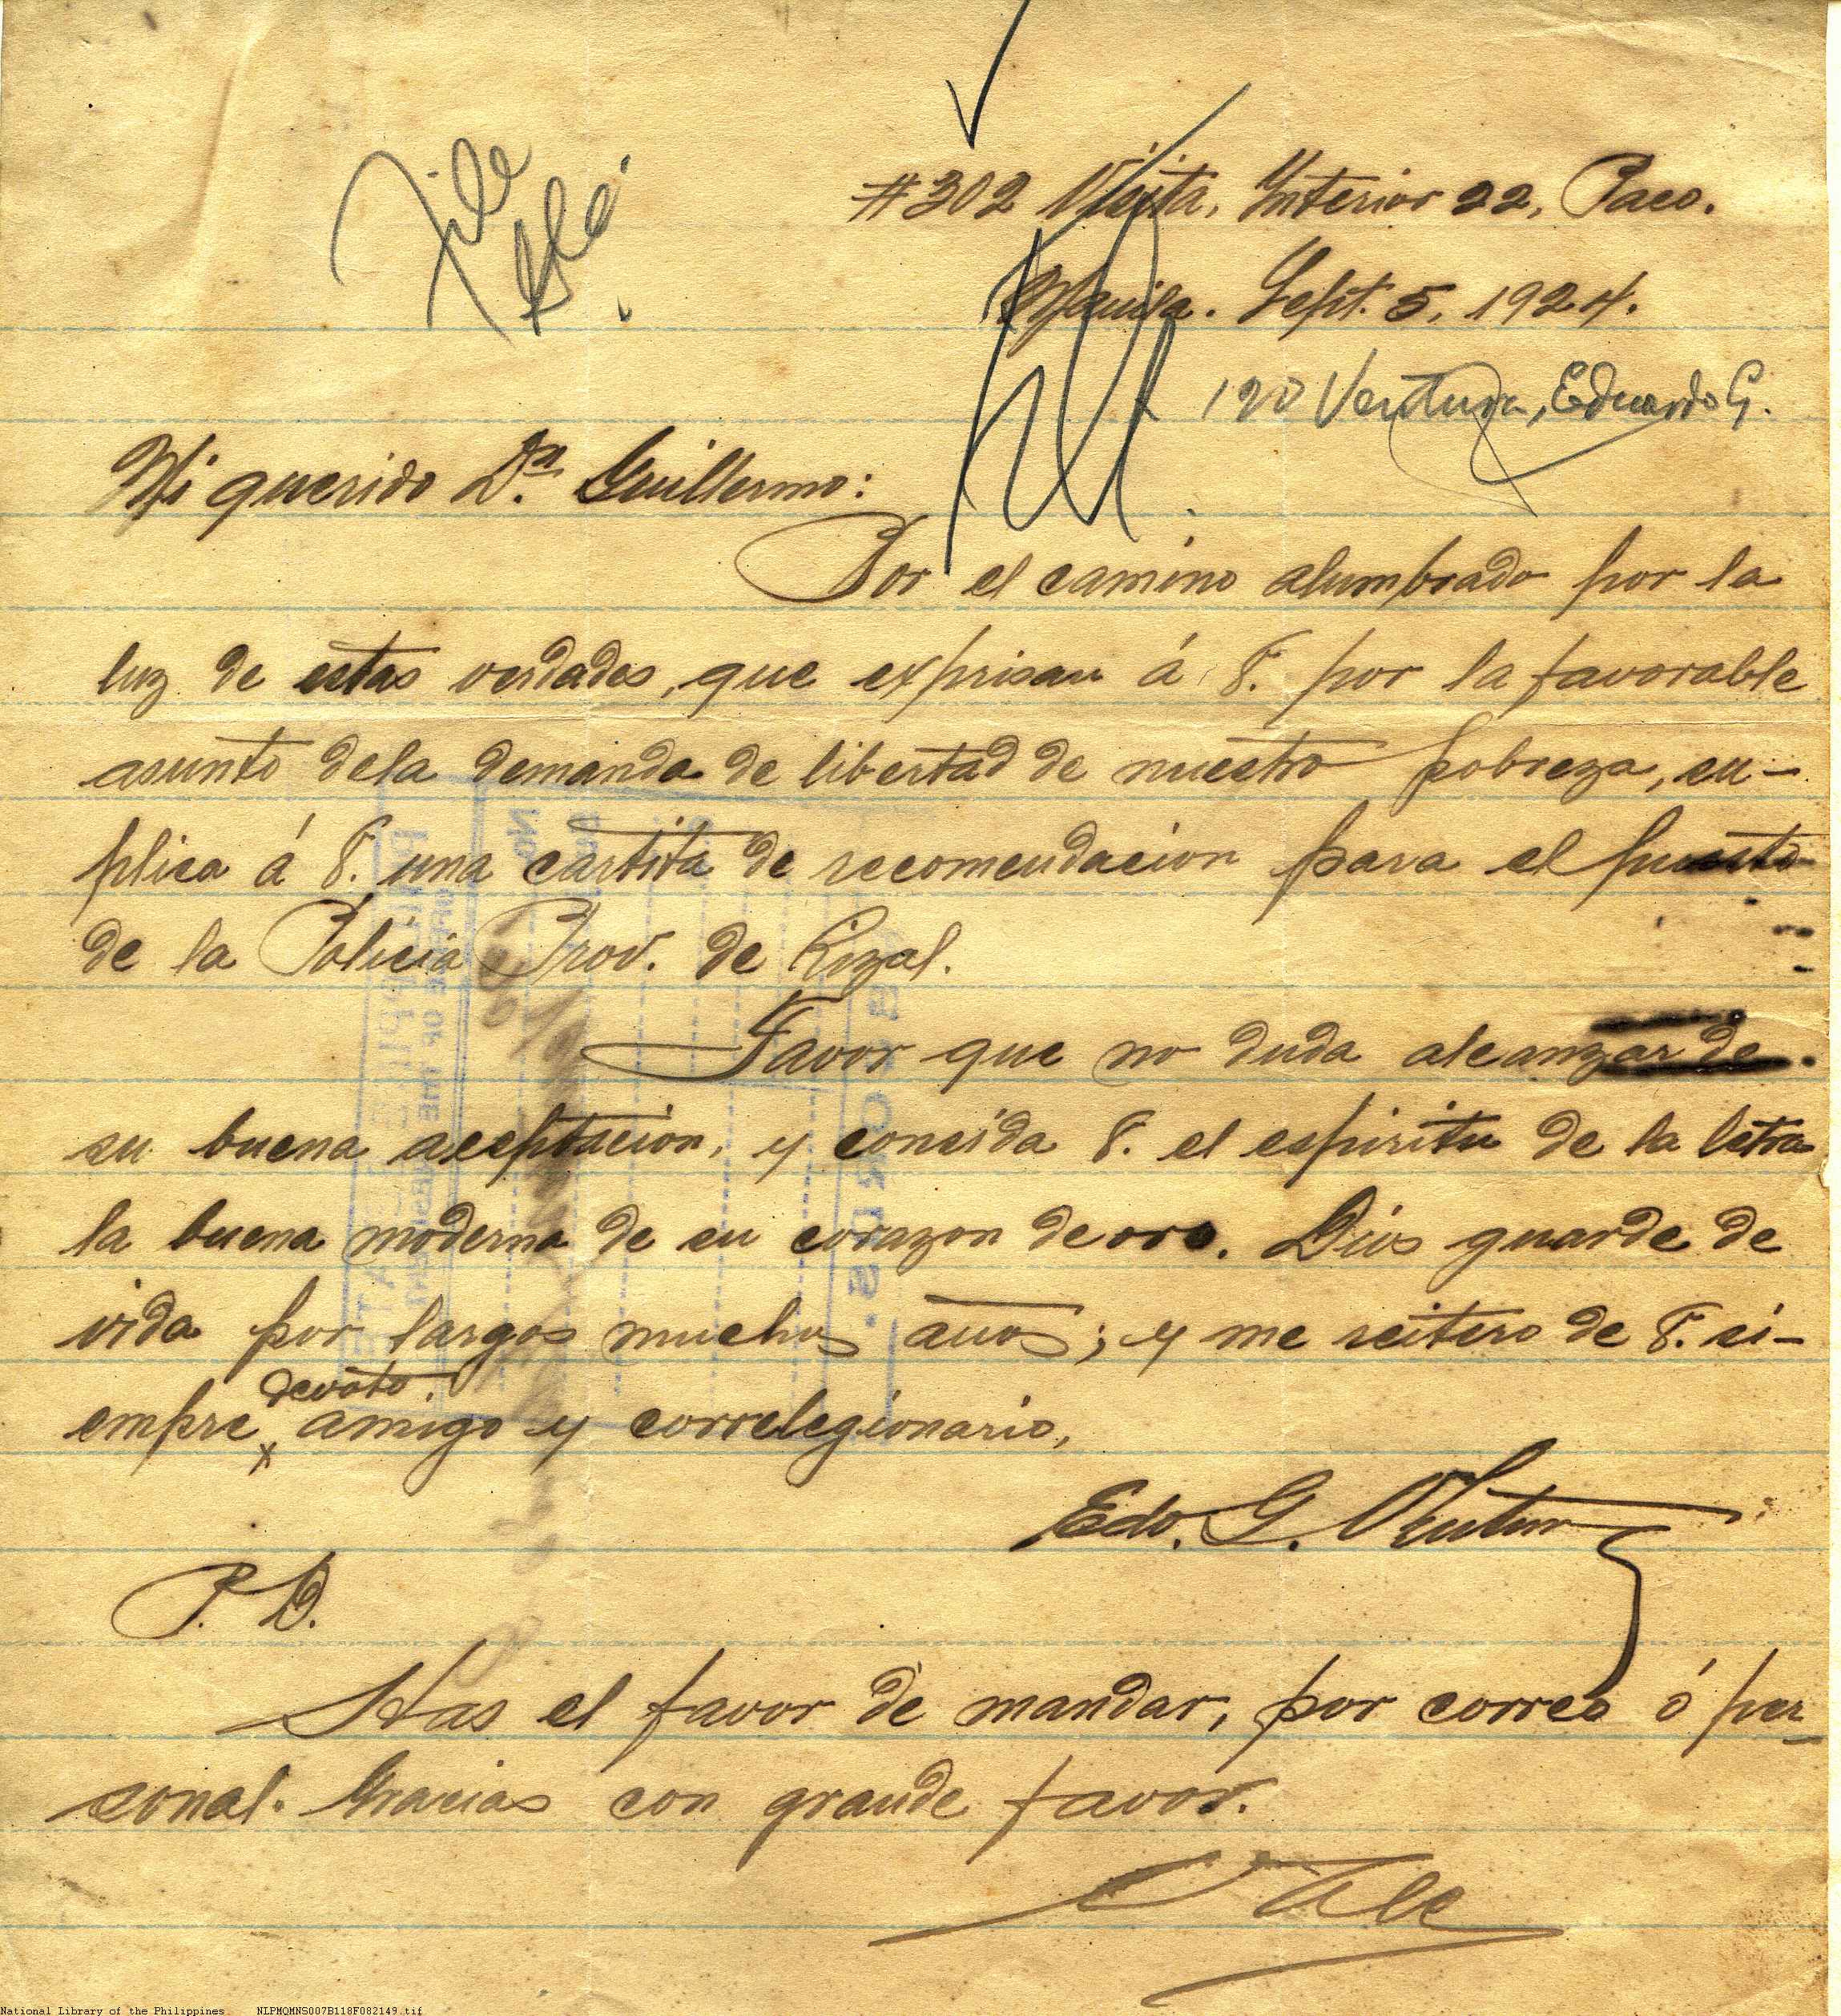 File
#302 Vista, Interior 22, Paco.
Manila. Sept. 5, 1924.
120 Ventura, Eduardo G.
Mi querido Dn. Guillermo:
Por el camino alumbrado por la
luz de estas verdades, que expresan á V. por la favorable
asunto dela demanda de libertad de nuestro pobreza, su-
plica á V. una cartita de recomendacion para el puesto
de la Policia Prov. de Rizal.
Favor que no duda alcanzar de
su buena aceptacion, y concida V. el espiritu de la letra
la buena moderna de su corazon de oro. Dios guarde de
vida por largos muchos años; y me reitero de V. si-
devoto
empre x amigo y correlegionario,
Edo. G. Ventura
P. D.
Has el favor de mandar, por correo ó per-
sonal. Gracias con grande favor.
Vale
National Library of the Philippines NLPMQMNS007B118F082149.tif